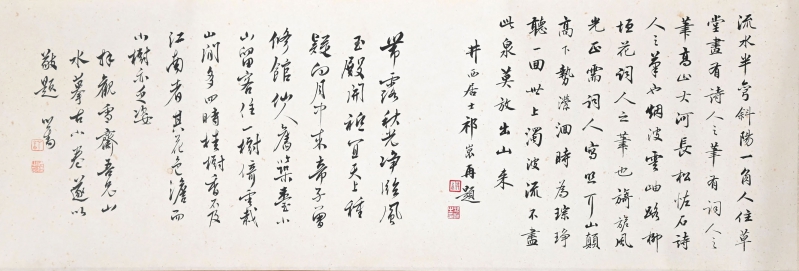 流水半弯斜陽一角人住草
堂畫有詩人之筆有詞人之
筆高山大河長松怪石詩
人之筆也烟波雲岫路柳
垣花詞人之筆也旖旎風
光正需詞人寫照 山顛
高下勢瀠洄時為琮琤
聽一回世上濁波流不盡
此泉莫放出山來
井西居士祁崑再題
帶露秋光净臨風
玉殿開祗宜天上種
疑向月中來帝子曾
修館仙人舊築臺小
山留客住一樹倚雲栽
山間多四時桂樹有不及
江南者其花色澹而
小樹亦
拜觀雪齋吾兄山
水摹古小卷遂以
敬題 心畬